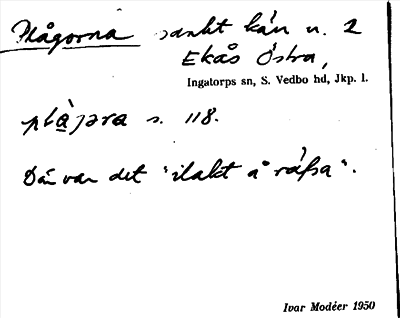 Plågorna sankt kärr n. 2
Ekås Östra,
Ingatorps sn, S. Vedbo hd, Jkp. l.
s. 118.
Där var det "ilakt å räfsa".
Ivar Modéer 1950